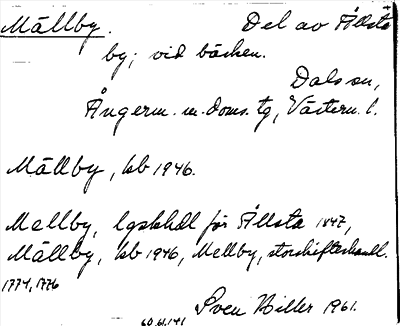 Mällby. Del av Ållsta
by; vid bäcken.
Dals sn,
Ångerm. m. doms. tg, Västern. l.
Mällby, kb 1946.
Mellby, lgskhdl för Ållsta 1847,
Mällby, kb 1946, Mellby, storskifteshandl.
1774, 1776
Sven Hiller 1961.
60.61.141